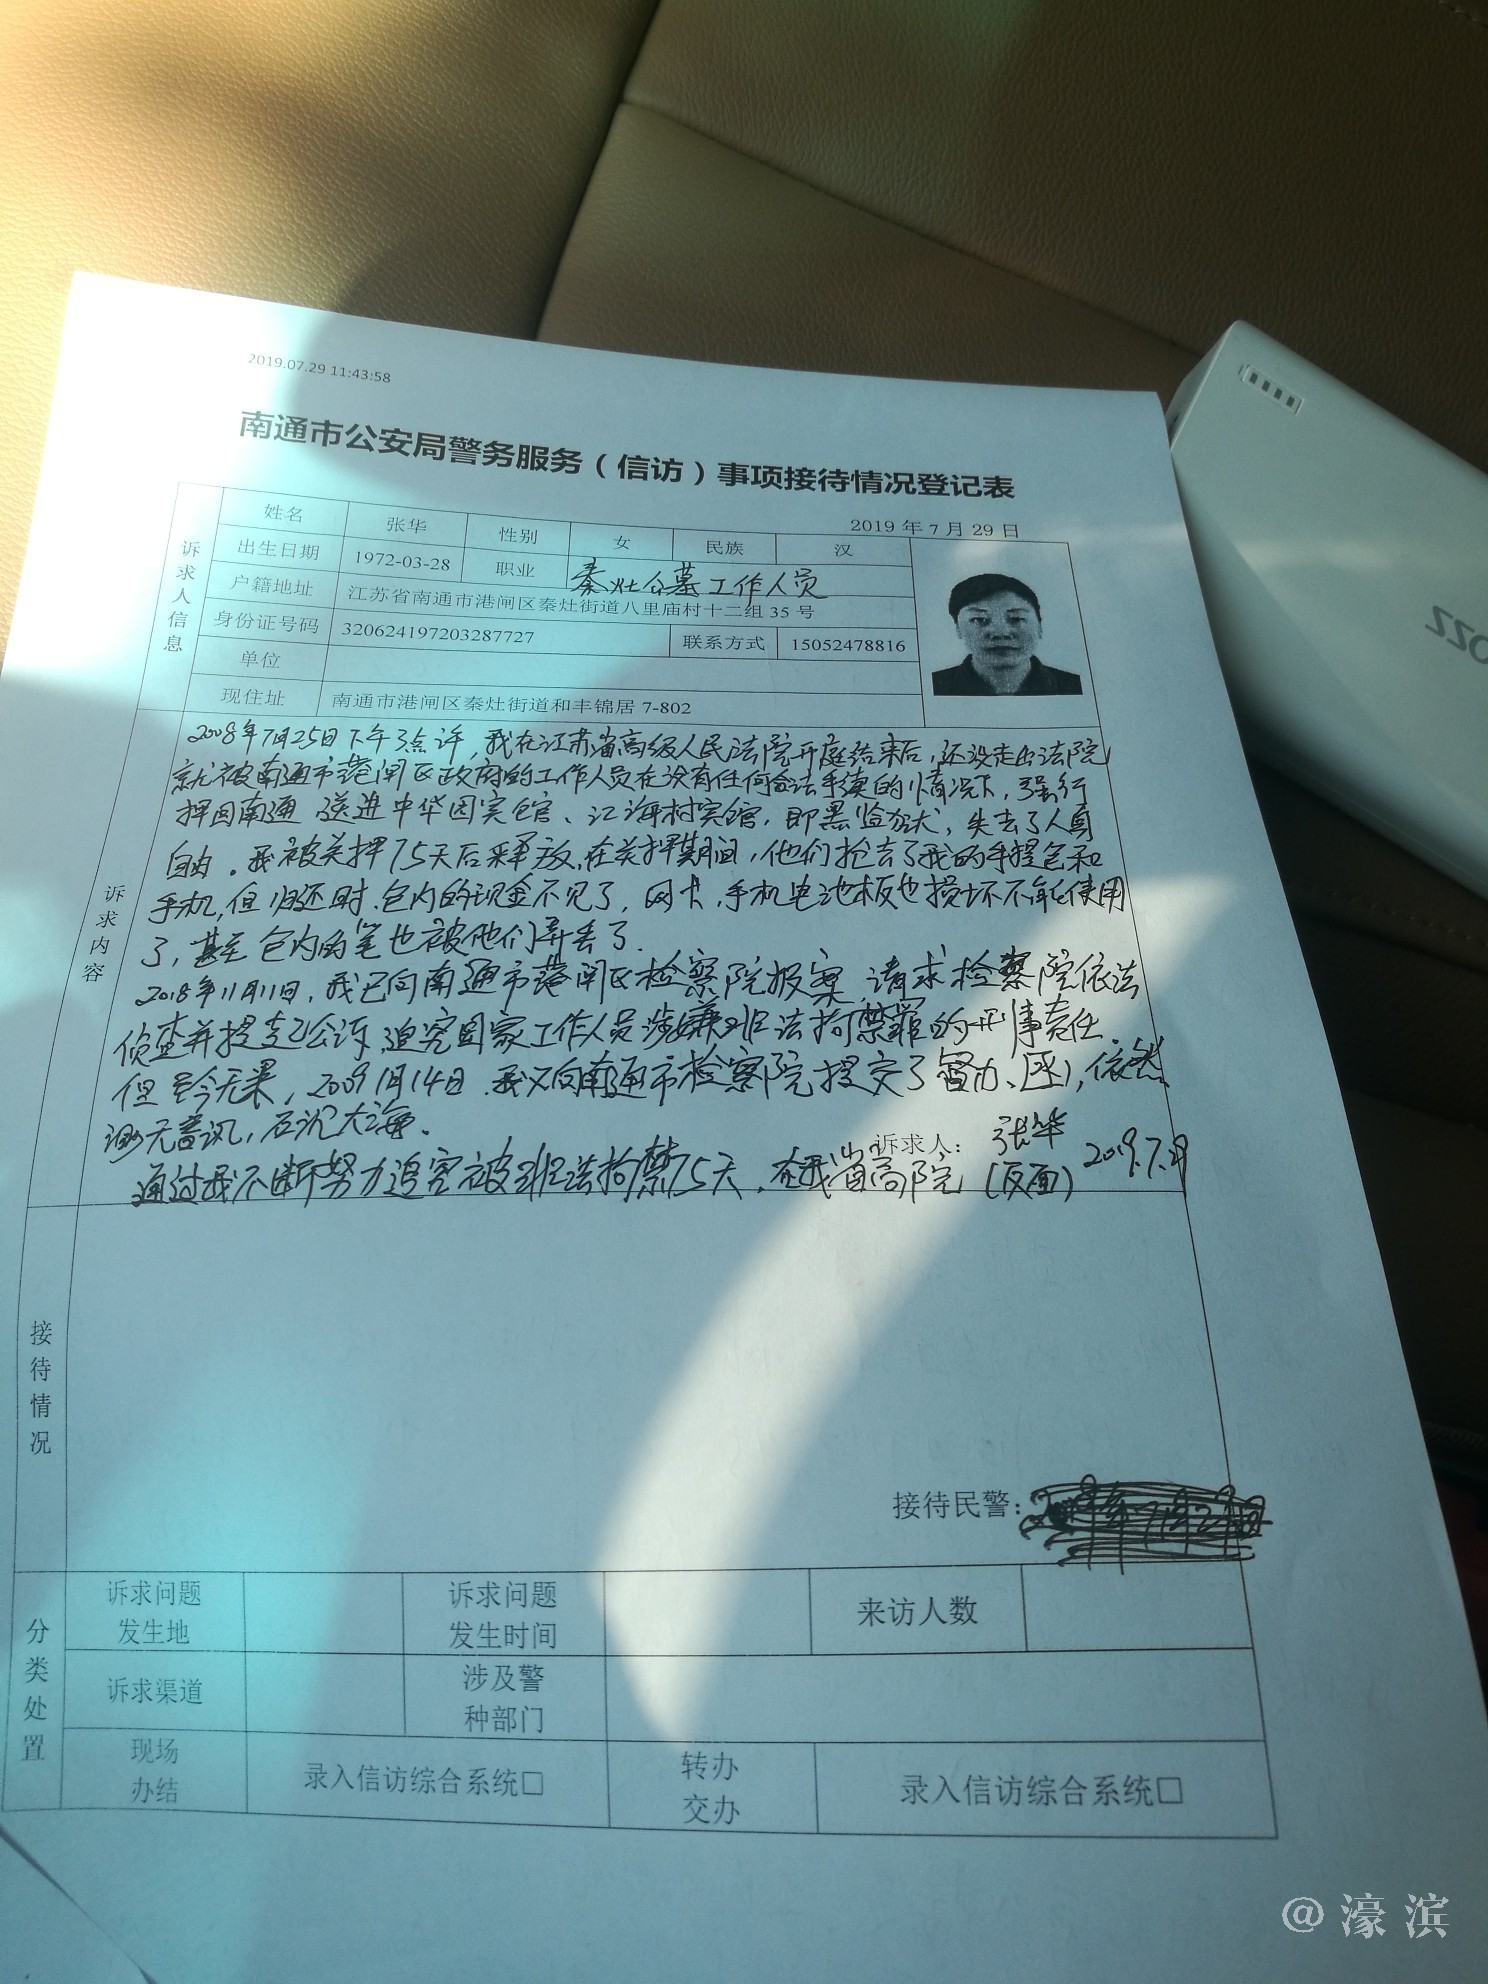 2019.07.29 11:43:58
南通市公安局警务服务（信访）事项接待情况登记表
2019 年 7 月 29 日
诉求人信息
姓名 张华 性别 女 民族 汉
出生日期 1972-03-28 职业 秦灶公墓工作人员
户籍地址 江苏省南通市港闸区秦灶街道八里庙村十二组 35 号
身份证号码 320624197203287727 联系方式 15052478816
单位
现住址 南通市港闸区秦灶街道和丰锦居 7-802
诉求内容
2008年7月25日下午3点许，我在江苏省高级人民法院开庭结束后，还没走出法院
就被南通市港闸区政府的工作人员在没有任何合法手续的情况下，强行
押回南通 送进中华园宾馆、江海村宾馆，即黑监狱，失去了人身
自由。我被关押75天后释放，在关押期间，他们抢去了我的手提包和
手机，但归还时，包内的现金不见了，网卡，手机电池板也损坏不能使用
了，甚至包内的笔也被他们弄丢了.
2018年11月11日，我已向南通市港闸区检察院报案，请求检察院依法
侦查并提起公诉，追究国家工作人员涉嫌非法拘禁罪的刑事责任.
但至今无果，2009 1月14日.我又向南通市检察院提交了督办、函，依然
渺无音讯，石沉大海.
诉求人： 张华
通过我不断努力追究被非法拘禁75天，在我省高院 (反面) 2019.7.29
接待情况
接待民警：
分类处置
诉求问题发生地 诉求问题发生时间 来访人数
诉求渠道 涉及警种部门
现场办结 录入信访综合系统□ 转办交办 录入信访综合系统□
@濠滨
ozz